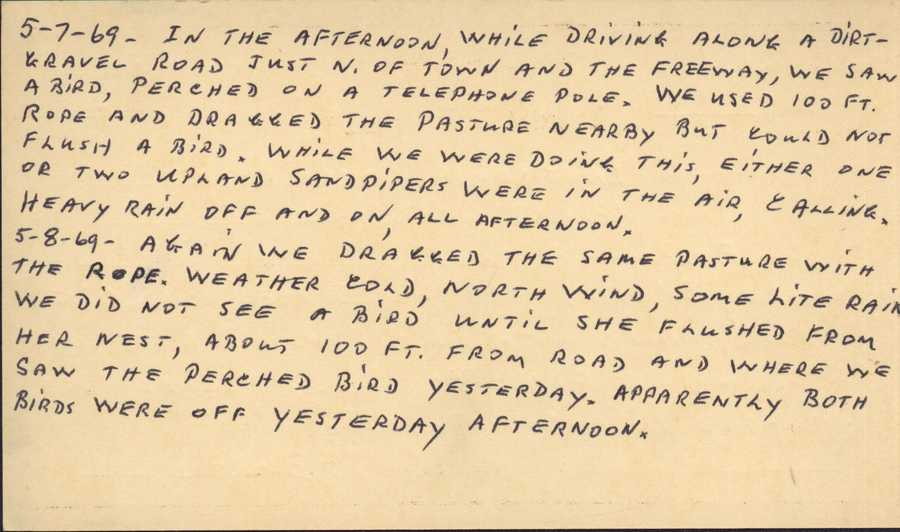 5-7-69- IN THE AFTERNOON, WHILE DRIVING ALONG A DIRT-
GRAVEL ROAD JUST N. OF TOWN AND THE FREEWAY, WE SAW
A BIRD, PERCHED ON A TELEPHONE POLE. WE USED 100 FT.
ROPE AND DRAGGED THE PASTURE NEARBY BUT COULD NOT
FLUSH A BIRD. WHILE WE WERE DOING THIS, EITHER ONE
OR TWO UPLAND SANDPIPERS WERE IN THE AIR, CALLING.
HEAVY RAIN OFF AND ON, ALL AFTERNOON.
5-8-69- AGAIN WE DRAGGED THE SAME PASTURE WITH
THE ROPE. WEATHER COLD, NORTH WIND, SOME LITE RAIN
WE DID NOT SEE A BIRD UNTIL SHE FLUSHED FROM
HER NEST, ABOUT 100 FT. FROM ROAD AND WHERE WE
SAW THE PERCHED BIRD YESTERDAY. APPARENTLY BOTH
BIRDS WERE OFF YESTERDAY AFTERNOON.